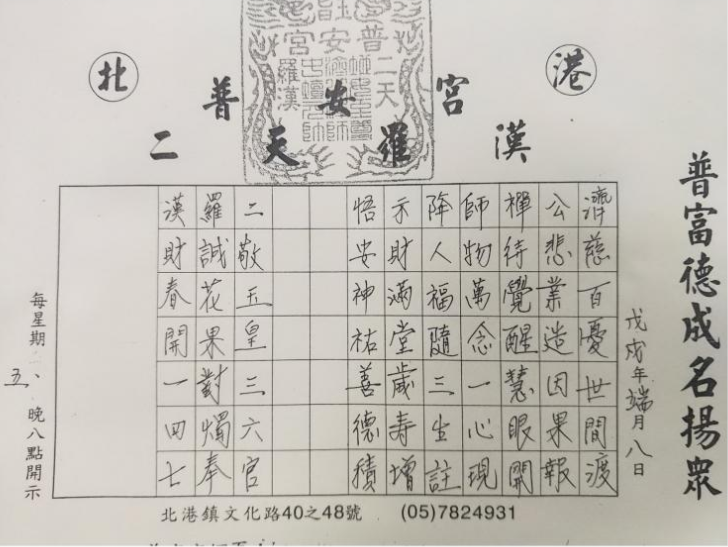 北港
普安宮
二天羅漢
普富德成名揚眾
戊戌年端月八日
濟慈百憂世間渡
公悲業造因果報
禪待覺醒慧眼開
師物萬念一心現
降人福隨三生註
示財滿堂歲壽增
悟安神祐善德積
二敬玉皇三六官
羅誠花果對燭奉
漢財春開一四七
每星期一、五晚八點開示
北港鎮文化路40之48號 (05)7824931